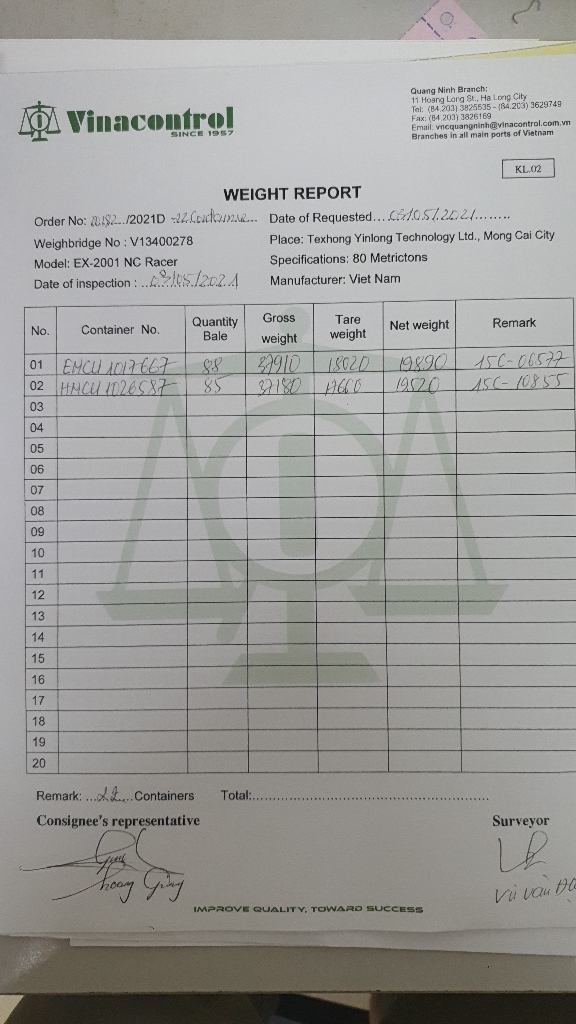 Vinacontrol
SINCE 1957
Quang Ninh Branch:
11 Hoang Long St., Ha Long City
Tel: (84.203) 3825535 - (84.203) 3629749
Fax: (84.203) 3826169
Email: vncquangninh@vinacontrol.com.vn
Branches in all main ports of Vietnam
KL.02
WEIGHT REPORT
Order No: /2021D Date of Requested... /05/2021........
Weighbridge No : V13400278 Place: Texhong Yinlong Technology Ltd., Mong Cai City
Model: EX-2001 NC Racer Specifications: 80 Metrictons
Date of inspection : /05/2021 Manufacturer: Viet Nam
No. Container No. Quantity Bale Gross weight Tare weight Net weight Remark
01 EMCU 1017667 88 37910 18020 19890 15C-06577
02 HMCU 1026587 85 37180 17660 19520 15C-10855
03
04
05
06
07
08
09
10
11
12
13
14
15
16
17
18
19
20
Remark: ...22...Containers Total:......................................................
Consignee's representative Surveyor
IMPROVE QUALITY, TOWARD SUCCESS